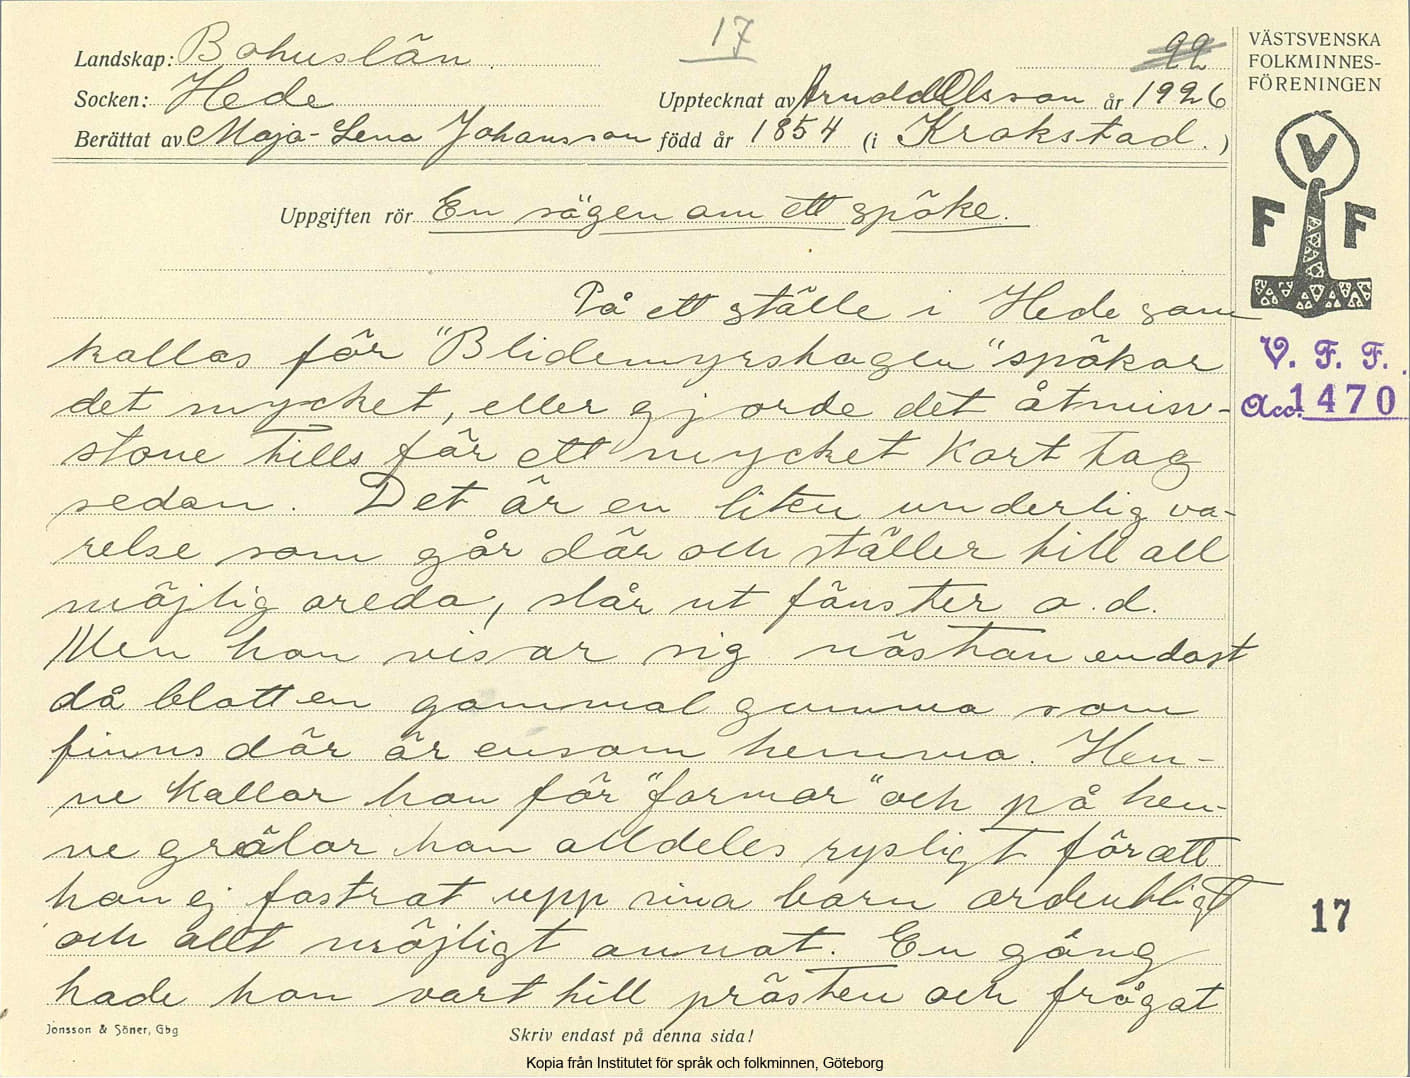 17
22
Landskap: Bohuslän.
Socken: Hede
Upptecknat av Arnold Olsson år 1926
Berättat av Maja-Lena Johansson född år 1854 (i Krokstad.)
Uppgiften rör En sägen om ett spöke.
På ett ställe i Hede som
kallas för "Blidemyrshagen" spökar
det mycket, eller gjorde det åtmin-
stone tills för ett mycket kort tag
sedan. Det är en liten underlig va-
relse som går där och ställer till all
möjlig oreda, slår ut fönster o.d.
Men han visar sig nästan endast
då blott en gammal gumma som
finns där är ensam hemma. Hen-
ne kallar han för "formor" och på hen-
ne grälar han alldeles rysligt för att
hon ej fostrat upp sina barn ordentligt
och allt möjligt annat. En gång
hade hon vart till prästen och frågat
Jonsson & Söner, Gbg
Skriv endast på denna sida!
Kopia från Institutet för språk och folkminnen, Göteborg
VÄSTSVENSKA
FOLKMINNES-
FÖRENINGEN
V
F F
V. F. F.
Acc. 1470
17